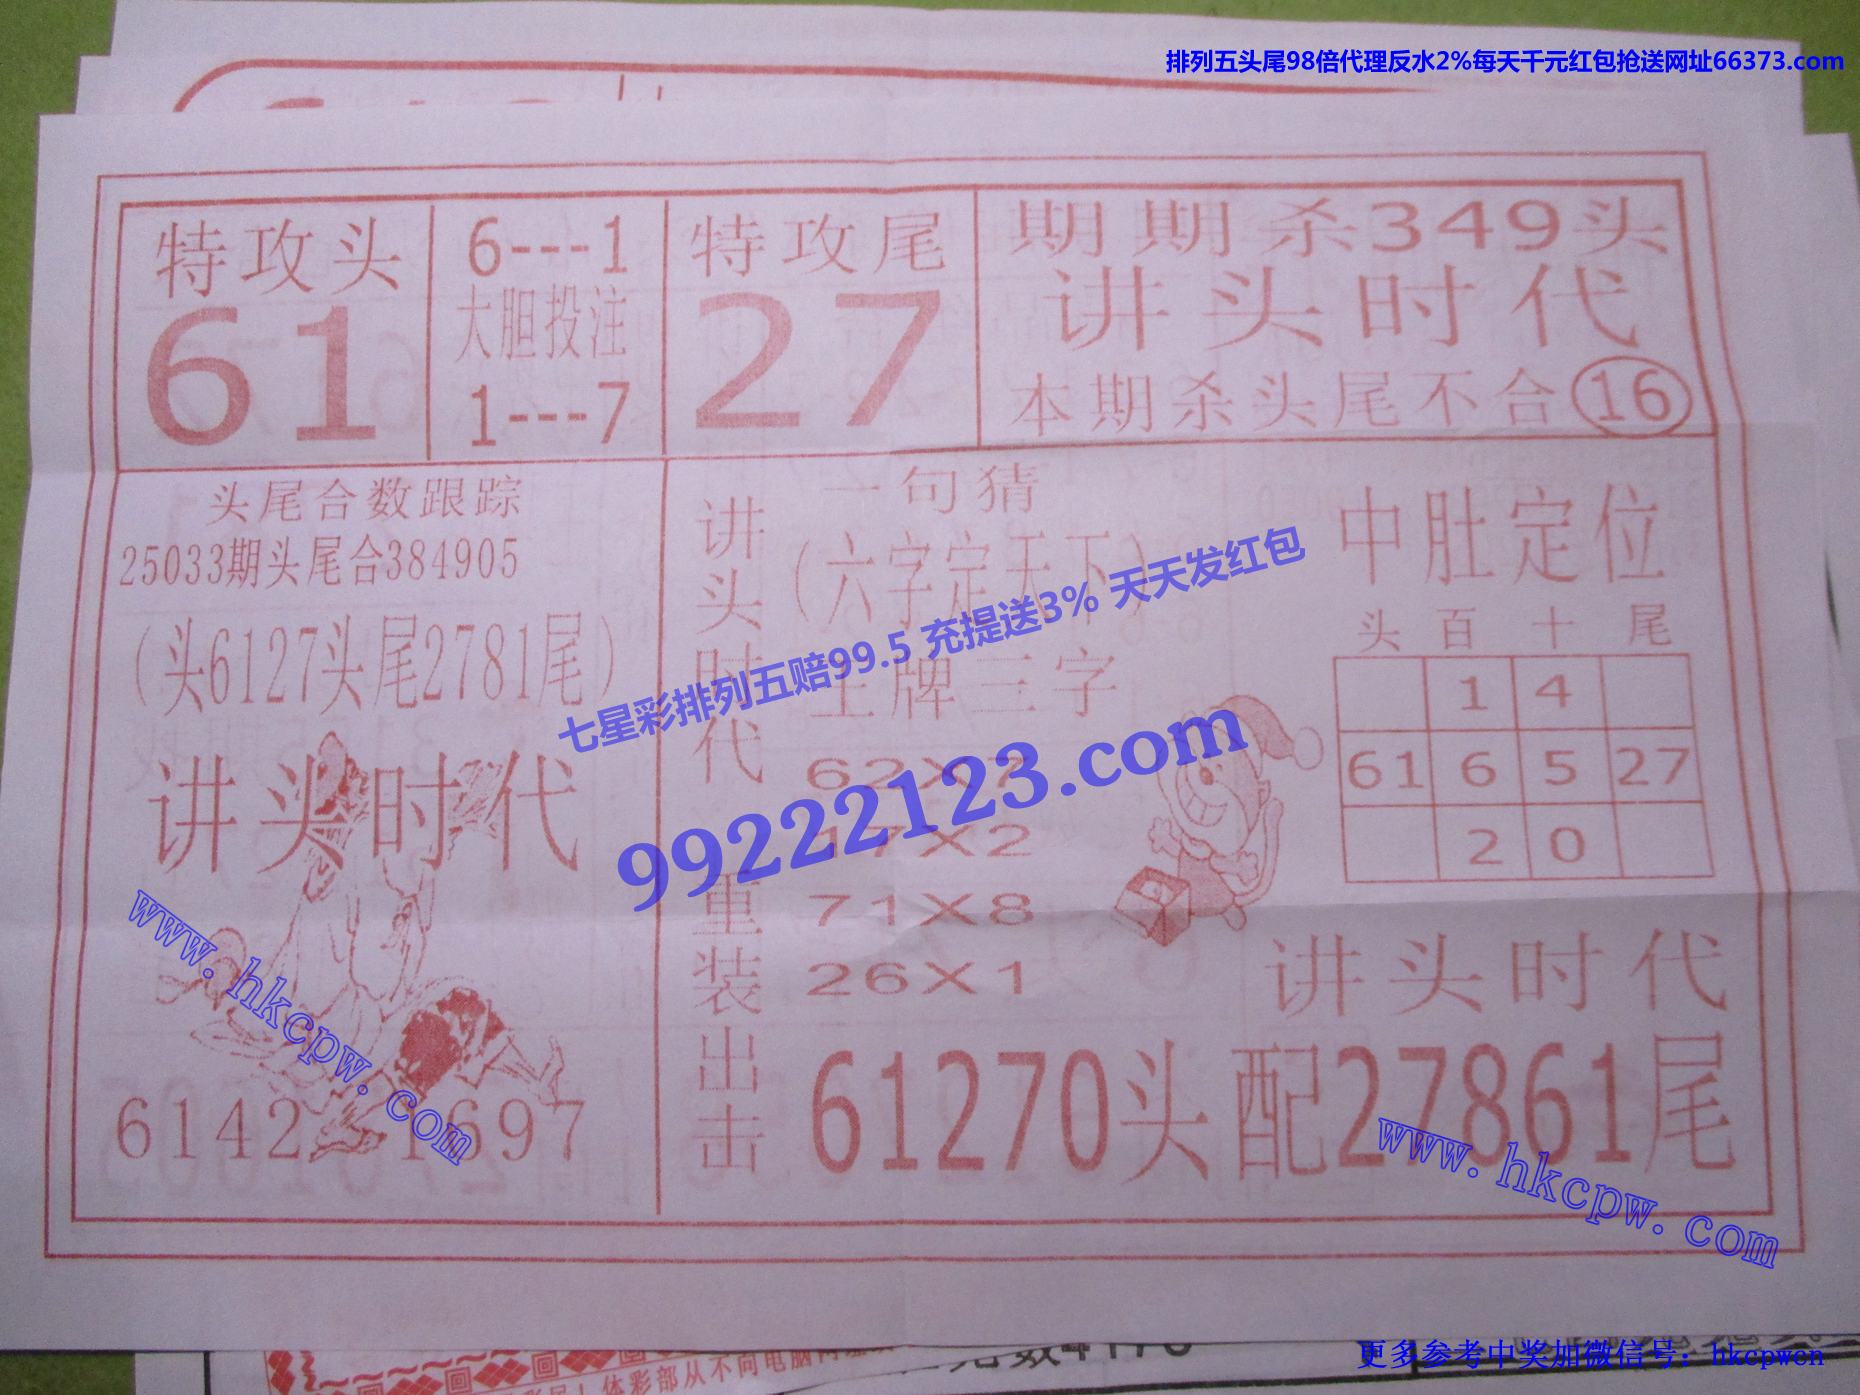 排列五头尾98倍代理反水2%每天千元红包抢送网址66373.com
特攻头
61
6---1
大胆投注
1---7
特攻尾
27
期期杀349头
讲头时代
本期杀头尾不合16
头尾合数跟踪
25033期头尾合384905
(头6127头尾2781尾)
讲头时代
6142 1697
讲头时代 重装出击
一句猜
(六字定天下)
王牌三字
62X7
17X2
71X8
26X1
中肚定位
头 百 十 尾
1 4
61 6 5 27
2 0
讲头时代
61270头配27861尾
七星彩排列五赔99.5 充提送3% 天天发红包
99222123.com
www.hkcpw.com
www.hkcpw.com
体彩部从不向电脑网
更多参考中奖加微信号：hkcpwcn